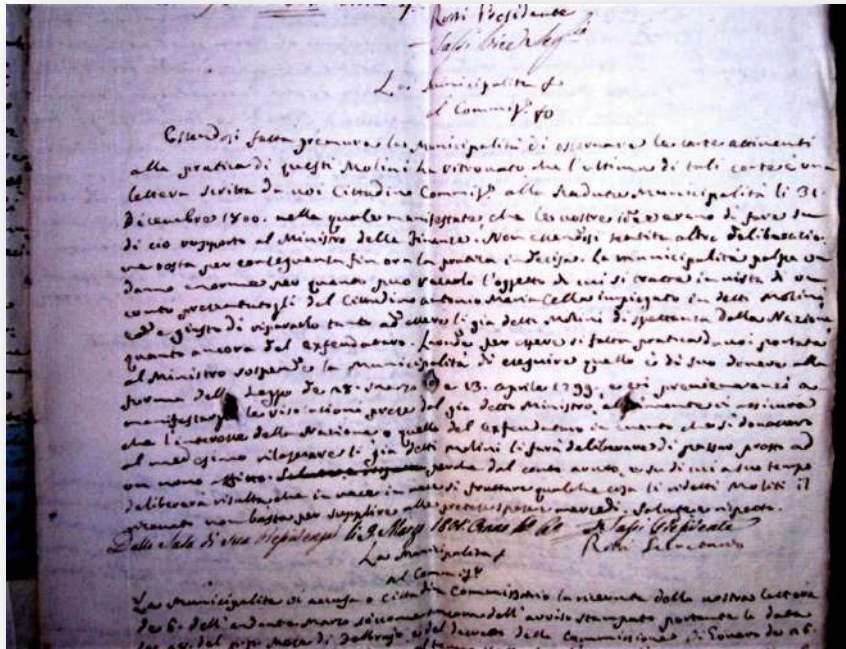 Rossi Presidente
Sassi Vice Seg.
La Municipalità
al Commiss.
Essendosi fatta premura la Municipalità di esaminare le carte attinenti
alla pratica di questi Molini ha ritrovato che l'ultima di tali carte è una
lettera scritta da voi Cittadino Commiss. alla Municipalità li 31
Dicembre 1800. nella quale manifestate, che le vostre erano di fare
di ciò rapporto al Ministro delle Finanze. Non essendosi sentita altra deliberazio
ne resta per conseguenza fin ora la pratica indecisa. la municipalità un
danno enorme per quanto l'oggetto di cui si tratta in vista di un
conto presentatogli dal Cittadino Antonio Maria Cella impiegato in detti Molini
ed è giusto di ripararlo tanto li già detti Molini di spettanza della Nazione
quanto ancora del exfeudatario. per essere si fatta pratica da voi portata
al Ministro sospende la Municipalità di eseguire quello è di suo dovere alla
forma della Legge de 18. Marzo e 13. Aprile 1799.
manifestar le la risoluzione prese dal già detto Ministro, altrimenti si assicura
che l'interesse della Nazione, o quello del exfeudatario in quanto che si
al medesimo li già detti molini li farà deliberare di passar presto ad
un novo affitto perche dal conto avuto, e su di cui a suo tempo
delibererà risulta che in vece di fruttare qualche cosa li ridetti Moliti il
ricavato non basta per supplire alle pretese spese e mercedi. Salute e rispetto.
Dalla Sala di sua Residenza li 9. Marzo 1801. Anno Sassi Presidente
Rossi Segretario
La Municipalità
al Commiss.
La Municipalità vi accusa o Cittadin Commissario la ricevuta della vostra lettera
de 6. dell'andante Marzo siccome ancora dell'avviso stampato portante la data
del p.p. Mese di Febbrajo, e del decreto della Commissione di Governo de 26.